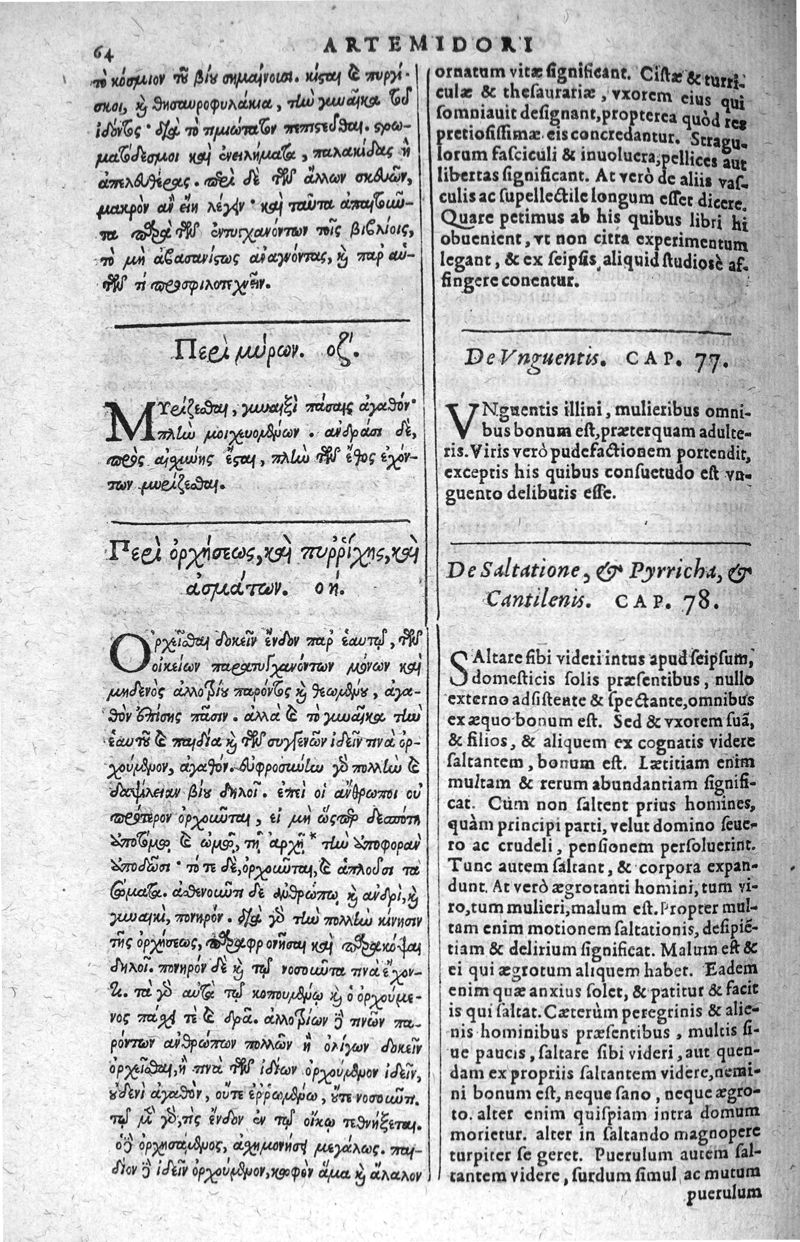 64
ARTEMIDORI
τὸ κόσμιον τοῦ βίου σημαίνουσι. κίσται καὶ πυργί-
σκοι, καὶ θησαυροφυλάκια, τὴν γυναῖκα τοῦ
ἰδόντος· διὰ τὸ τιμιώτατον πεπιστεῦσθαι. στρω-
ματόδεσμοι καὶ ἐνειλήματα, παλακίδας ἢ
ἀπελευθέρας. περὶ δὲ τῶν ἄλλων σκευῶν,
μακρὸν ἂν εἴη λέγειν· καὶ ταῦτα ἀπαιτοῦν-
τα παρὰ τῶν ἐντυγχανόντων τοῖς βιβλίοις,
τὸ μὴ ἀβασανίστως ἀναγνόντας, καὶ παρ' αὐ-
τῶν τι προσφιλοτεχνεῖν.
Περὶ μύρων. οζ.
Μυρίζεσθαι, γυναιξὶ πάσαις ἀγαθόν·
πλὴν μοιχευομένων. ἀνδράσι δὲ,
πρὸς αἰσχύνης ἔσται, πλὴν τῶν ἔθος ἐχόν-
των μυρίζεσθαι.
Περὶ ὀρχήσεως, καὶ πυρρίχης, καὶ
ἀσμάτων. οή.
Ὀρχεῖσθαι δοκεῖν ἔνδον παρ' ἑαυτῷ, τῶν
οἰκείων παρατυγχανόντων μόνων καὶ
μηδενὸς ἀλλοτρίου παρόντος καὶ θεωμένου, ἀγα-
θὸν ἐπίσης πᾶσιν. ἀλλὰ καὶ τὸ γυναῖκα τὴν
ἑαυτοῦ καὶ παιδία καὶ τῶν συγγενῶν ἰδεῖν τινὰ ὀρ-
χούμενον, ἀγαθόν. εὐφροσύνην γὰρ πολλὴν καὶ
δαψίλειαν βίου δηλοῖ. ἐπεὶ οἱ ἄνθρωποι οὐ
πρότερον ὀρχοῦνται, εἰ μὴ ὥσπερ δεσπότῃ
ἀποτόμῳ καὶ ὠμῷ, τῇ ἀρχῇ * τὴν ἀποφορὰν
ἀποδῶσι· τότε δὲ, ὀρχοῦνται, καὶ ἁπλοῦσι τὰ
σώματα. ἀσθενοῦντι δὲ ἀνθρώπῳ καὶ ἀνδρὶ, καὶ
γυναικὶ, πονηρόν. διὰ γὰρ τὴν πολλὴν κίνησιν
τῆς ὀρχήσεως, παραφρονῆσαι καὶ παρακόψαι
δηλοῖ. πονηρὸν δὲ καὶ τῷ νοσοῦντά τινα ἔχον-
τι. τὰ γὰρ αὐτὰ τῷ κοπουμένῳ καὶ ὁ ὀρχούμε-
νος πάσχει τε καὶ δρᾷ. ἀλλοτρίων δὲ τινῶν πα-
ρόντων ἀνθρώπων πολλῶν ἢ ὀλίγων δοκεῖν
ὀρχεῖσθαι, ἢ τινὰ τῶν ἰδίων ὀρχούμενον ἰδεῖν,
οὐδενὶ ἀγαθὸν, οὔτε ἐρρωμένῳ, οὔτε νοσοῦντι.
τῷ μὲν γὰρ, τὶς ἔνδον ἐν τῷ οἴκῳ τεθνήξεται.
ὁ δὲ ὀρχησάμενος, ἀσχημονήσει μεγάλως. παι-
δίον δὲ ἰδεῖν ὀρχούμενον, κωφὸν ἅμα καὶ ἄλαλον
ornatum vitæ significant. Cistæ & turri-
culæ & thesaurariæ, vxorem eius qui
somniauit designant, propterea quòd res
pretiosissimæ eis concredantur. Stragu-
lorum fasciculi & inuolucra, pellices aut
libertas significant. At verò de aliis vas-
culis ac supellectile longum esset dicere.
Quare petimus ab his quibus libri hi
obuenient, vt non citra experimentum
legant, & ex seipsis, aliquid studiosè af-
fingere conentur.
De Vnguentis. CAP. 77.
VNguentis illini, mulieribus omni-
bus bonum est, præterquam adulte-
ris. Viris verò pudefactionem portendit,
exceptis his quibus consuetudo est vn-
guento delibutis esse.
De Saltatione, & Pyrricha, &
Cantilenis. CAP. 78.
SAltare sibi videri intus apud seipsum,
domesticis solis præsentibus, nullo
externo adsistente & spectante, omnibus
ex æquo bonum est. Sed & vxorem suã,
& filios, & aliquem ex cognatis videre
saltantem, bonum est. Lætitiam enim
multam & rerum abundantiam signifi-
cat. Cùm non saltent prius homines,
quàm principi parti, velut domino seue-
ro ac crudeli, pensionem persoluerint.
Tunc autem saltant, & corpora expan-
dunt. At verò ægrotanti homini, tum vi-
ro, tum mulieri, malum est. Propter mul-
tam enim motionem saltationis, desipiẽ-
tiam & delirium significat. Malum est &
ei qui ægrotum aliquem habet. Eadem
enim quæ anxius solet, & patitur & facit
is qui saltat. Cæterùm peregrinis & alie-
nis hominibus præsentibus, multis si-
ue paucis, saltare sibi videri, aut quen-
dam ex propriis saltantem videre, nemi-
ni bonum est, neque sano, neque ægro-
to. alter enim quispiam intra domum
morietur. alter in saltando magnopere
turpiter se geret. Puerulum autem sal-
tantem videre, surdum simul ac mutum
puerulum